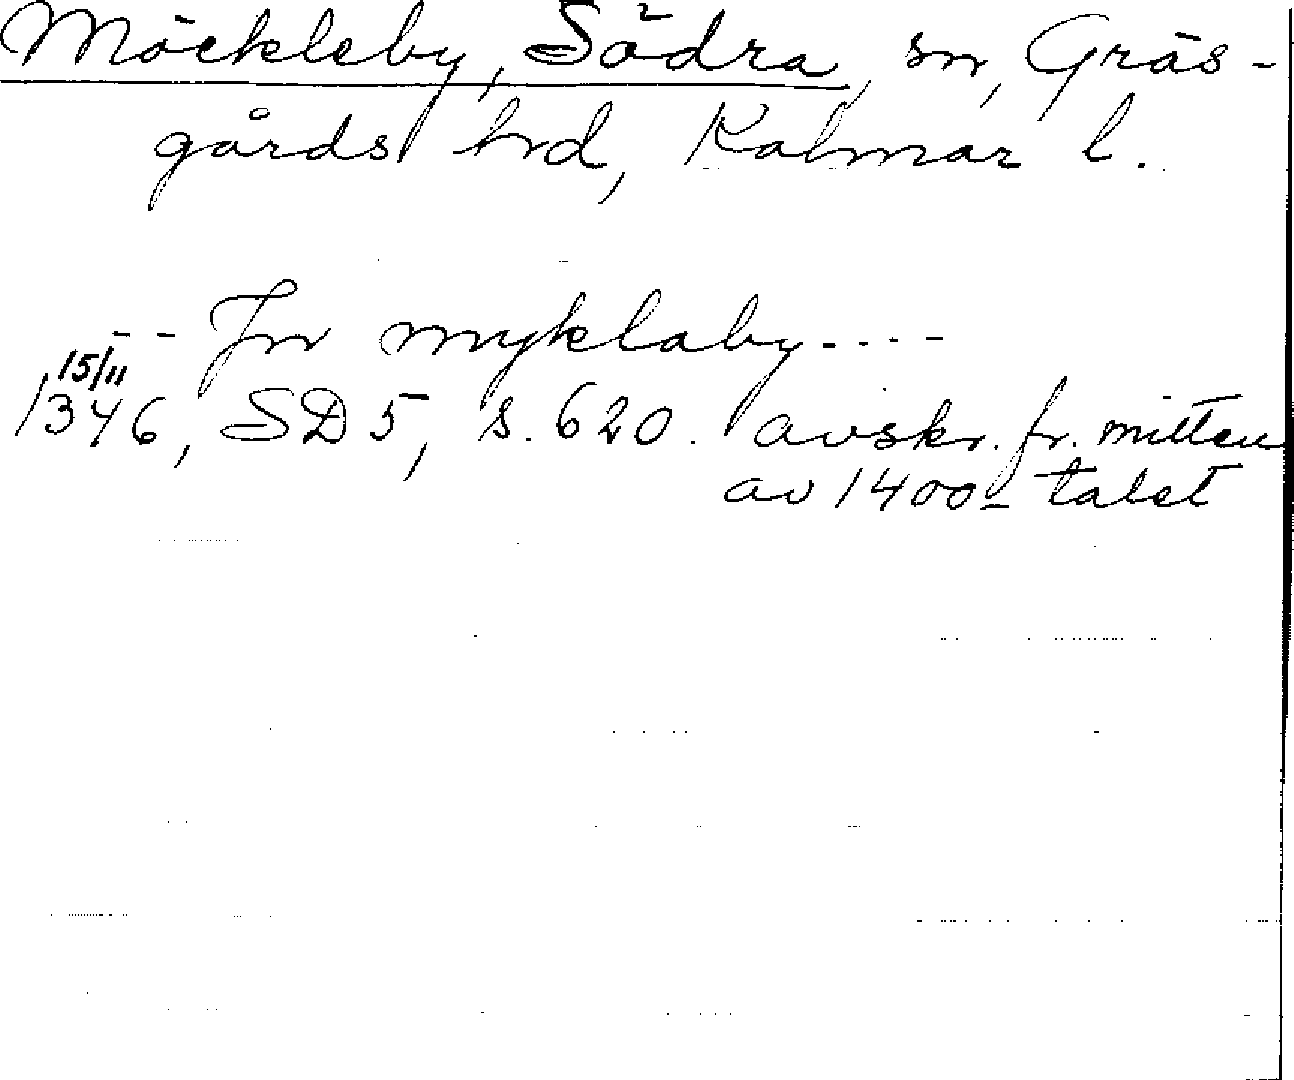 Möckleby, Södra, sn, Gräs-
gårds hrd, Kalmar l.
- - Jn myklaby. . . -
15/11
1346, SD 5, s. 620. avskr. fr. mitten
av 1400-talet